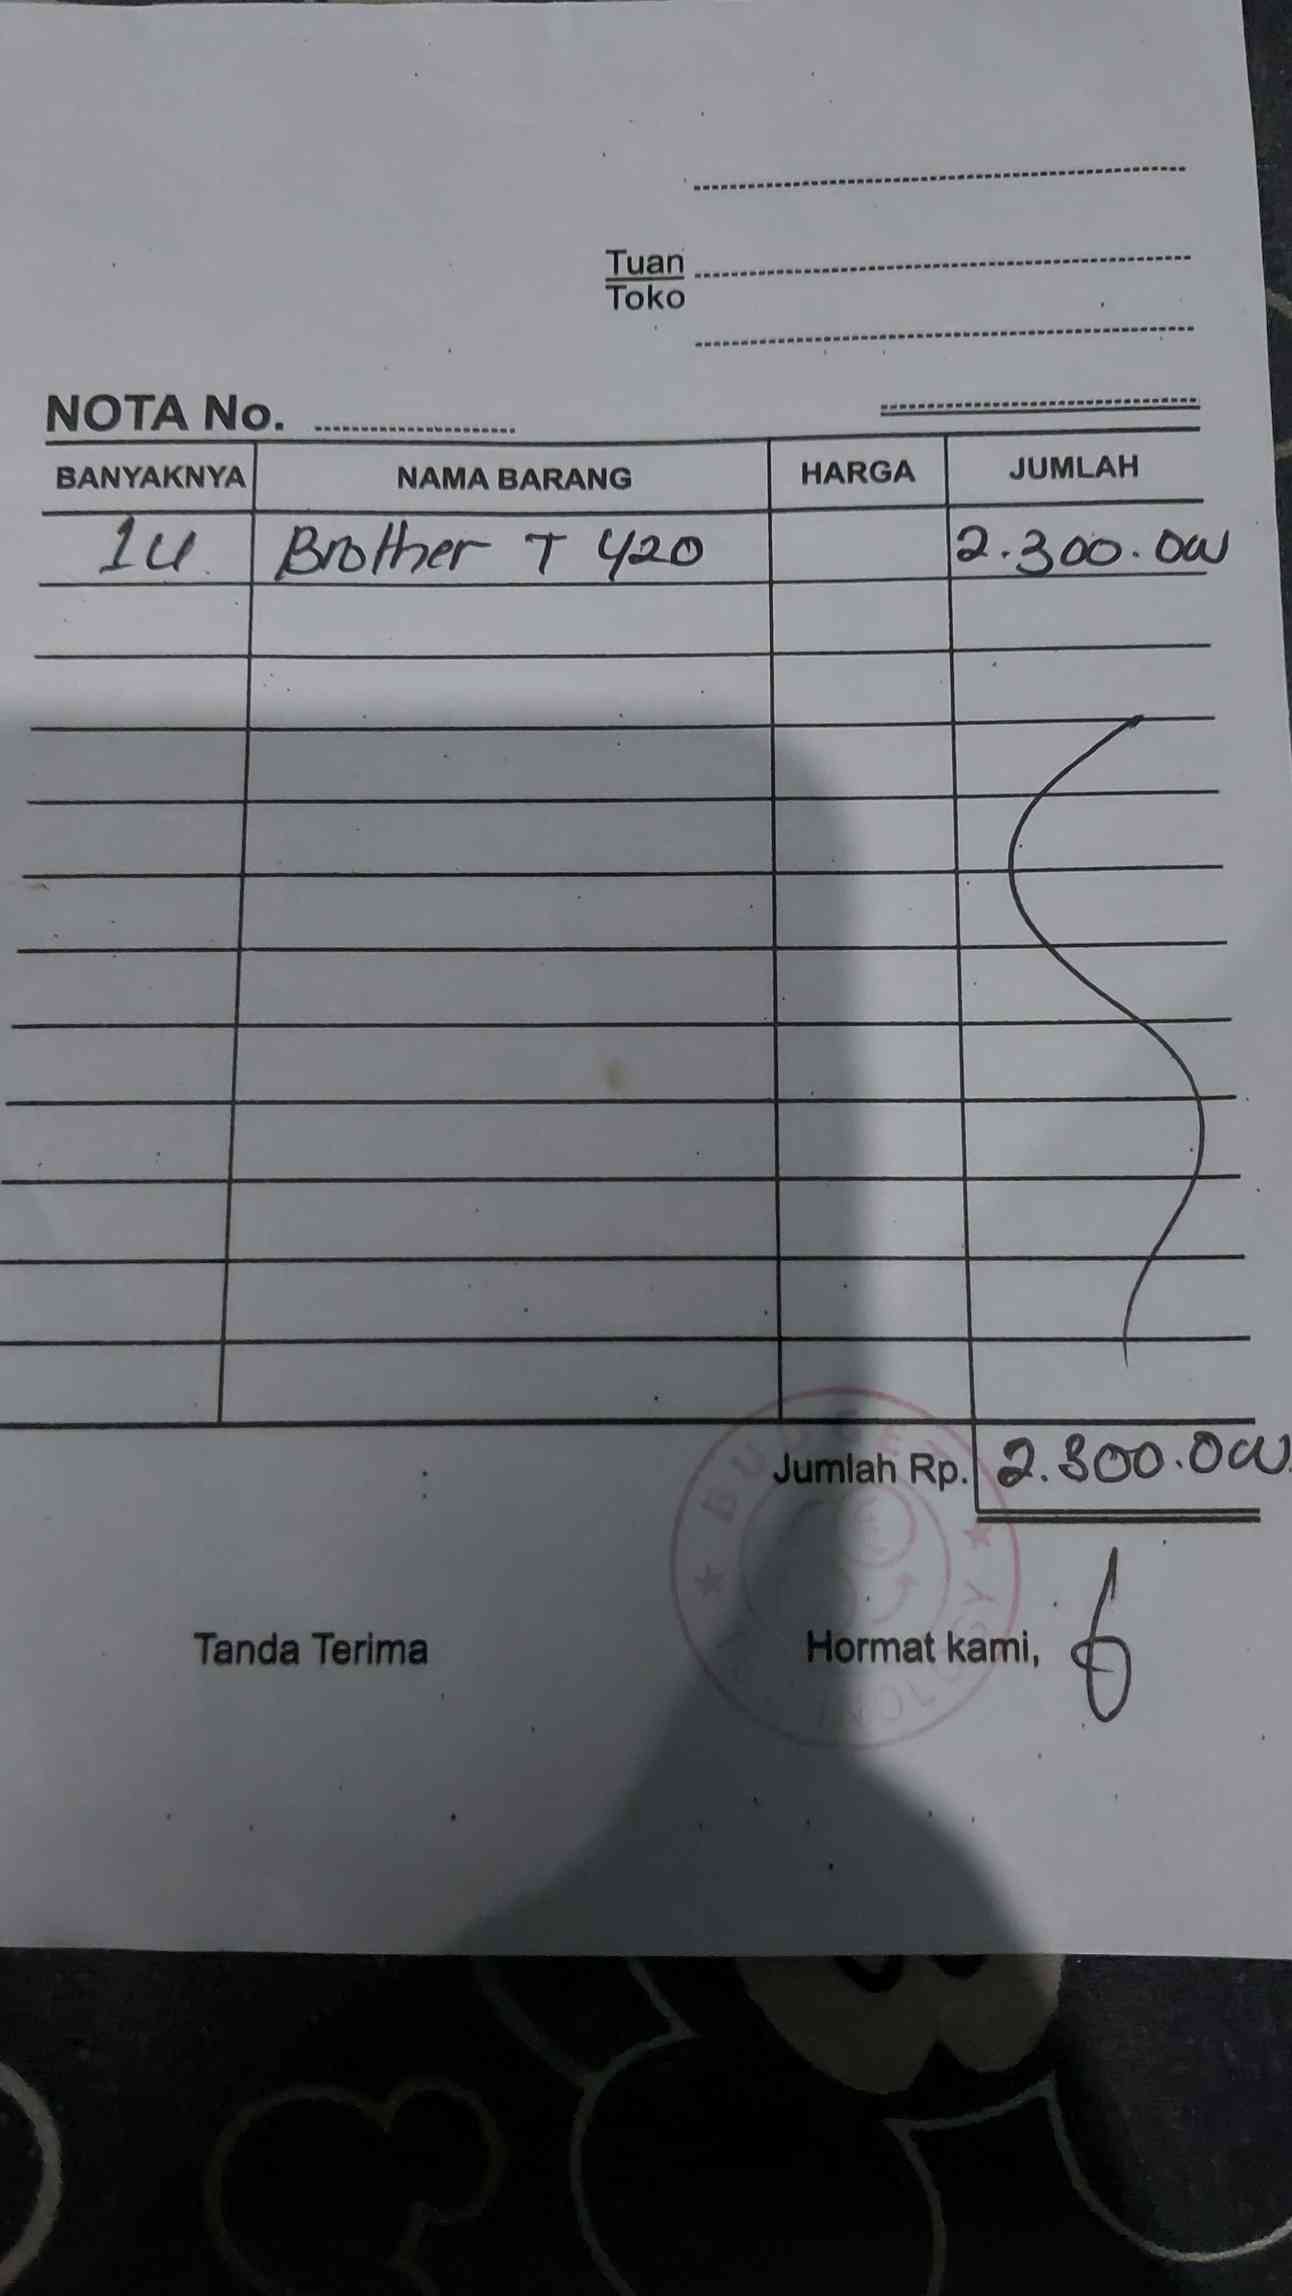 Tuan
Toko
NOTA No.
BANYAKNYA NAMA BARANG HARGA JUMLAH
1 U Brother T 420 2.300.000
Jumlah Rp. 2.300.000
Tanda Terima Hormat kami,